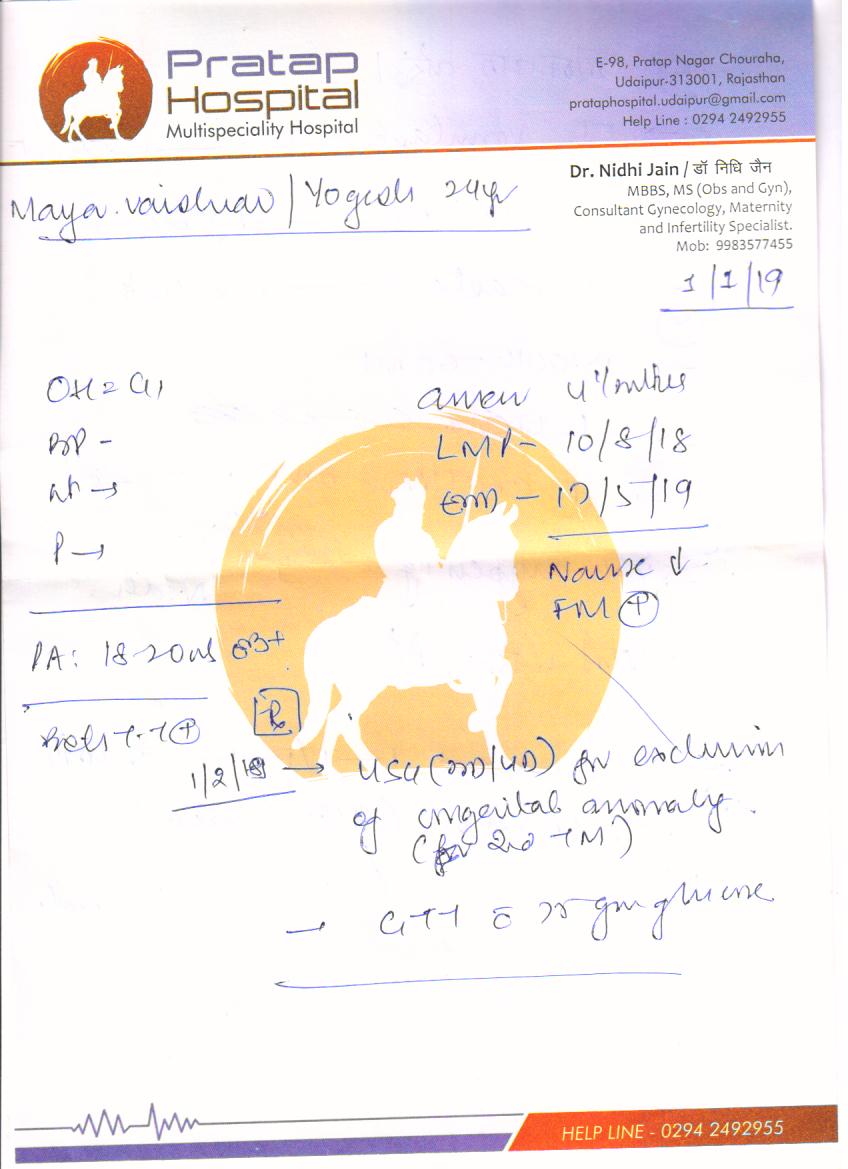 Pratap
Hospital
Multispeciality Hospital
E-98, Pratap Nagar Chouraha,
Udaipur-313001, Rajasthan
prataphospital.udaipur@gmail.com
Help Line : 0294 2492955
Dr. Nidhi Jain / डॉ निधि जैन
MBBS, MS (Obs and Gyn),
Consultant Gynecology, Maternity
and Infertility Specialist.
Mob: 9983577455
Maya. Vaishnav / Yogesh 24yr
1/1/19
OH = G1
BP -
wt →
P →
4½ mths
LMP - 10/8/18
- 17/5/19
Nausea ↓
FM (+)
PA: 18-20ws
T.T (+)
Rx
1/2/19 → USG (3D/4D) for exclusion
of congenital anomaly.
(for 2nd TM)
→ GTT c 75 gm glucose
HELP LINE - 0294 2492955